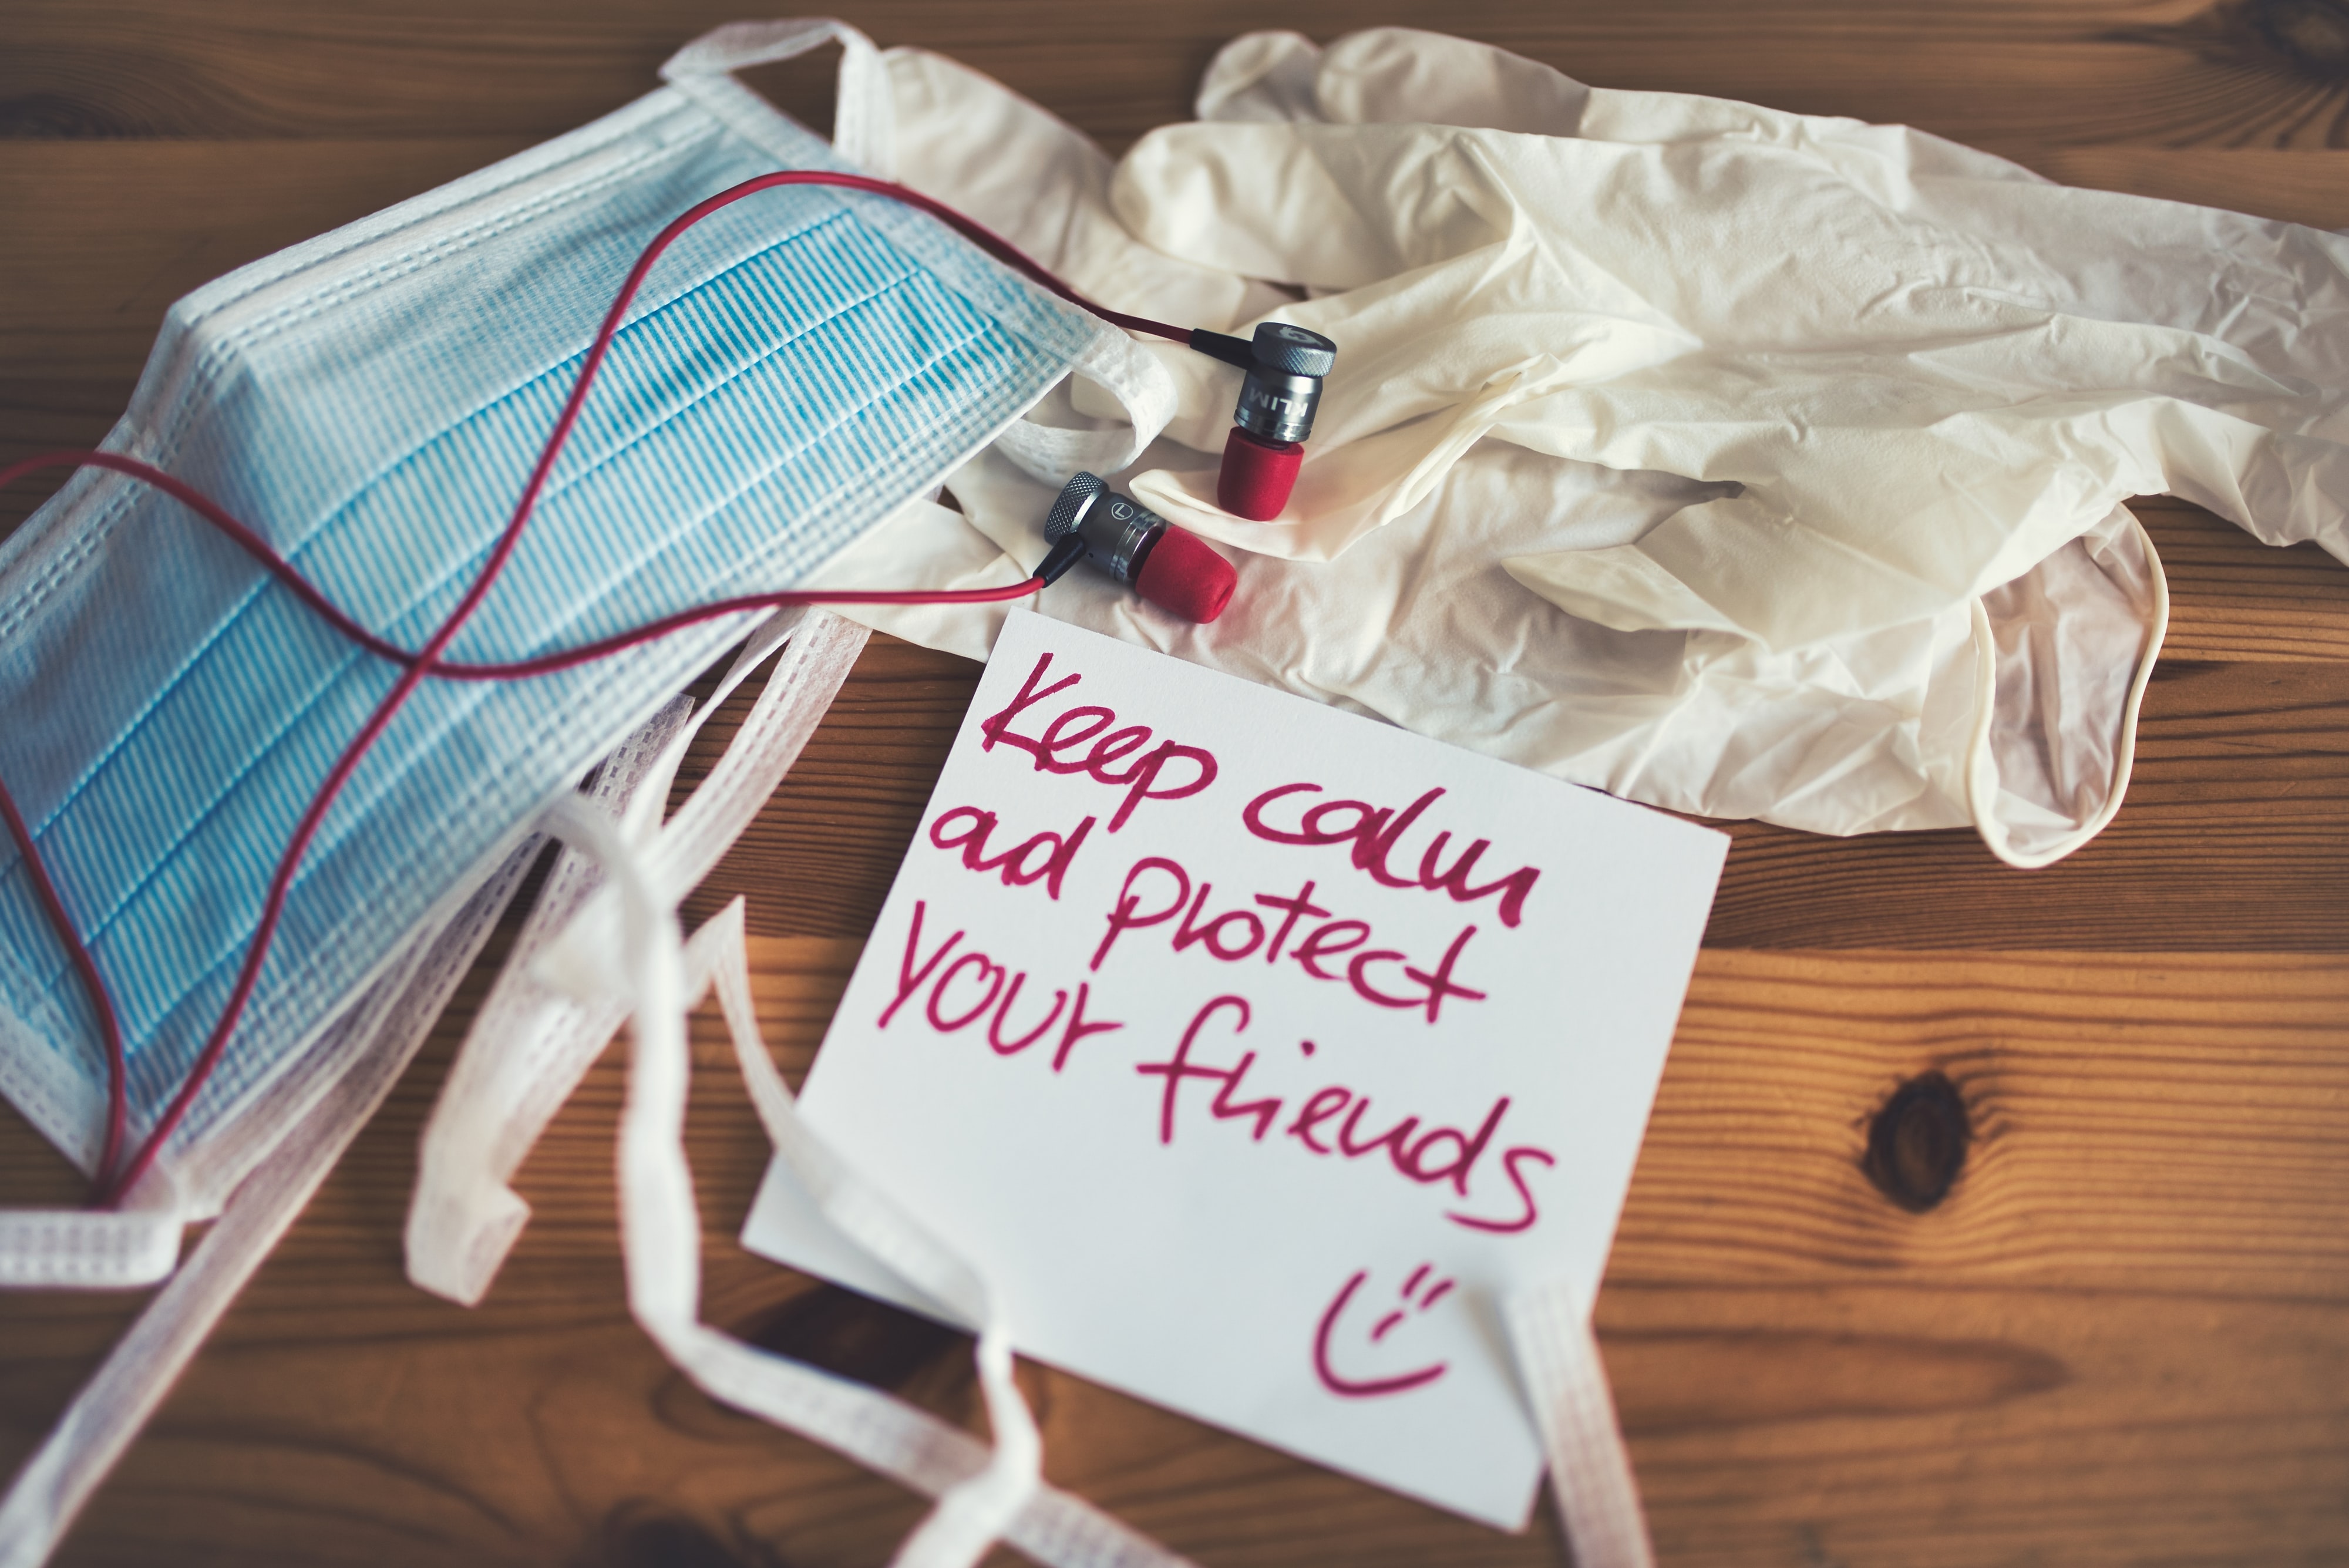 KLIM
L
Keep calm
ad protect
your friends